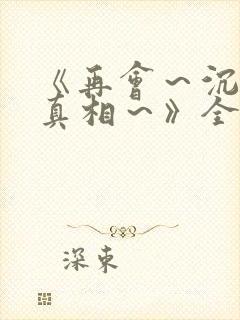 《再會～沉
真相～》全
深束